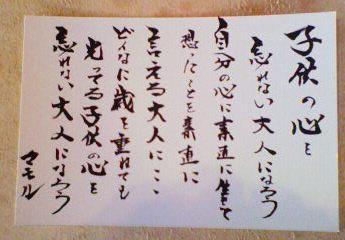 子供の心を
忘れない大人になろう
自分の心に素直に生きて
想ったことを素直に
言える大人に・・
どんなに歳を重ねても
光ってる子供の心を
忘れない大人になろう
マモル